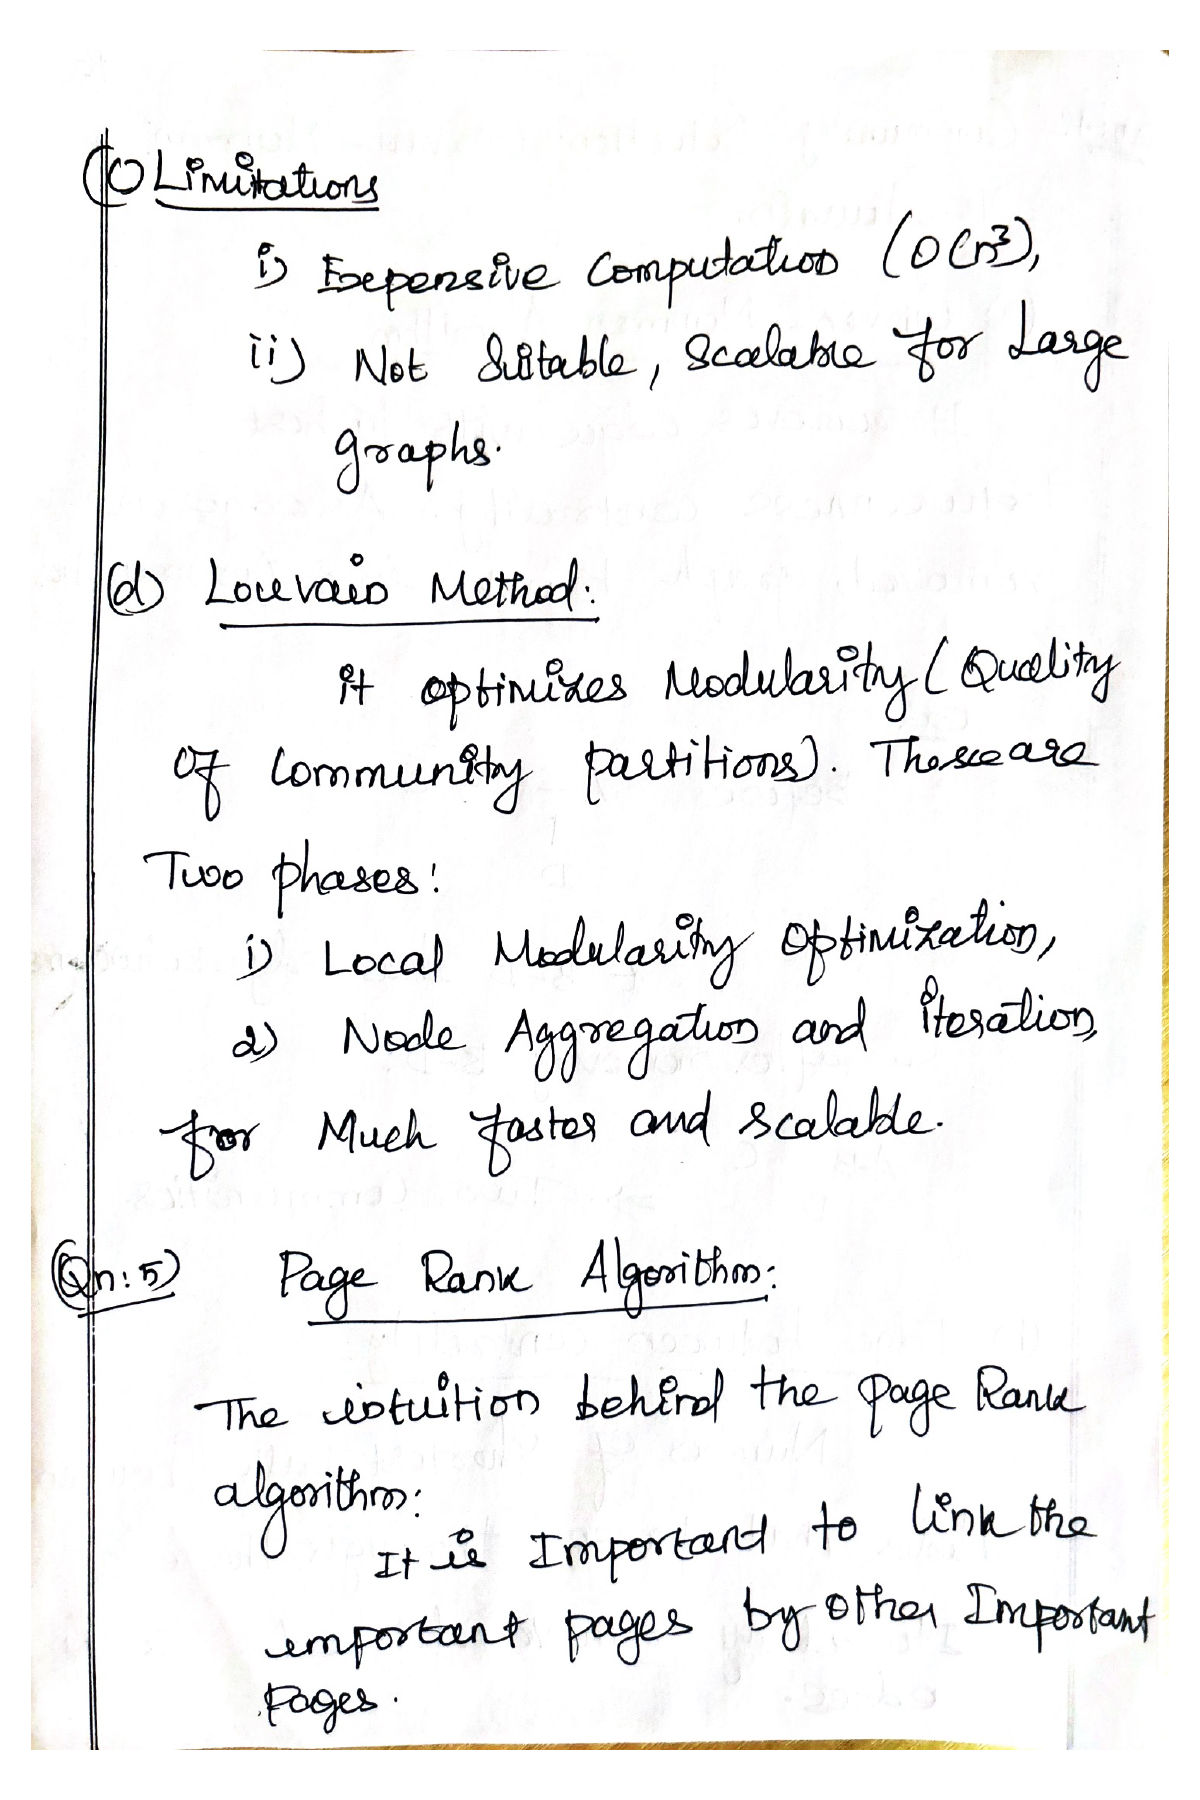 (c) Limitations
i) Expensive Computation (O(n³),
ii) Not Suitable, Scalable for Large
graphs.
(d) Louvain Method:
it optimizes Modularity (Quality
of Community partitions). These are
Two phases:
1) Local Modularity Optimization,
2) Node Aggregation and iteration,
for Much faster and scalable.
Qn: 5) Page Rank Algorithm:
The intuition behind the page Rank
algorithm:
It is Important to link the
important pages by other Important
pages.